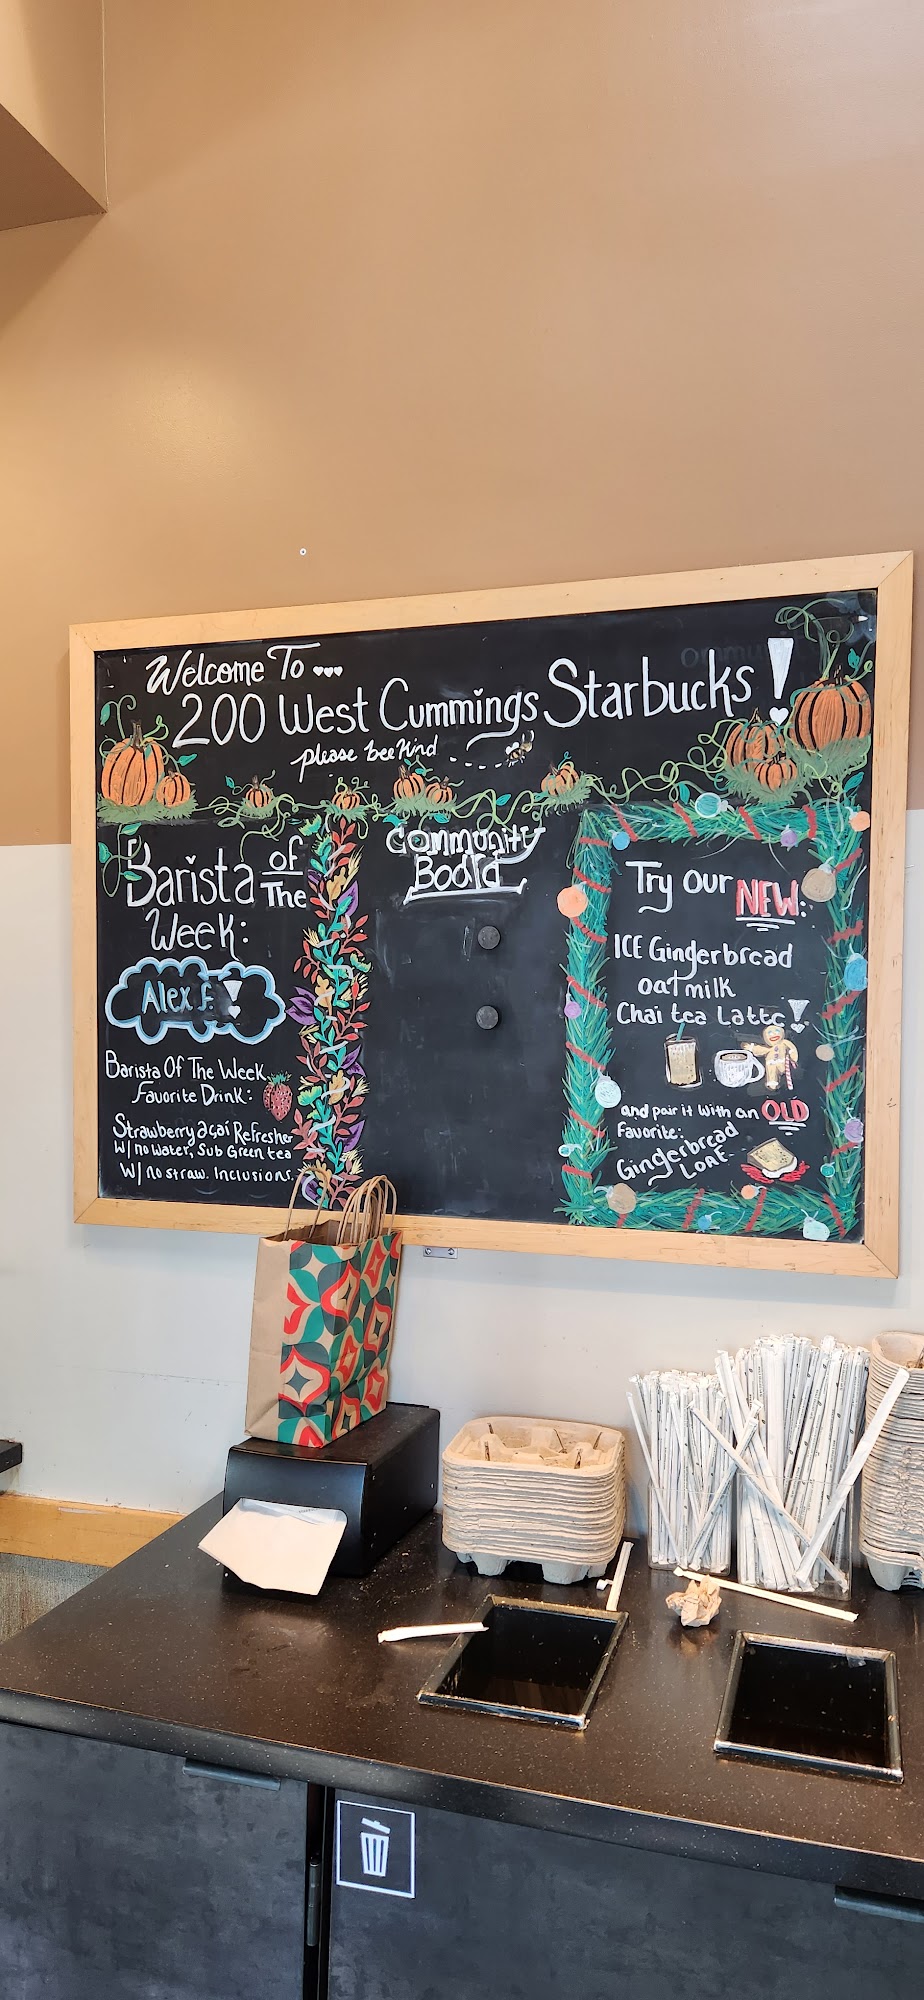 Welcome To
200 West Cummings Starbucks!
please bee kind
Barista of The
Week:
Alex F!
Barista Of The Week
Favorite Drink:
Strawberry açaí Refresher
W/ no water, Sub Green tea
W/ no straw. Inclusions.
Community
Board
Try our NEW:
ICE Gingerbread
oatmilk
Chai tea Latte!
and pair it with an OLD
Favorite:
Gingerbread
LOAF